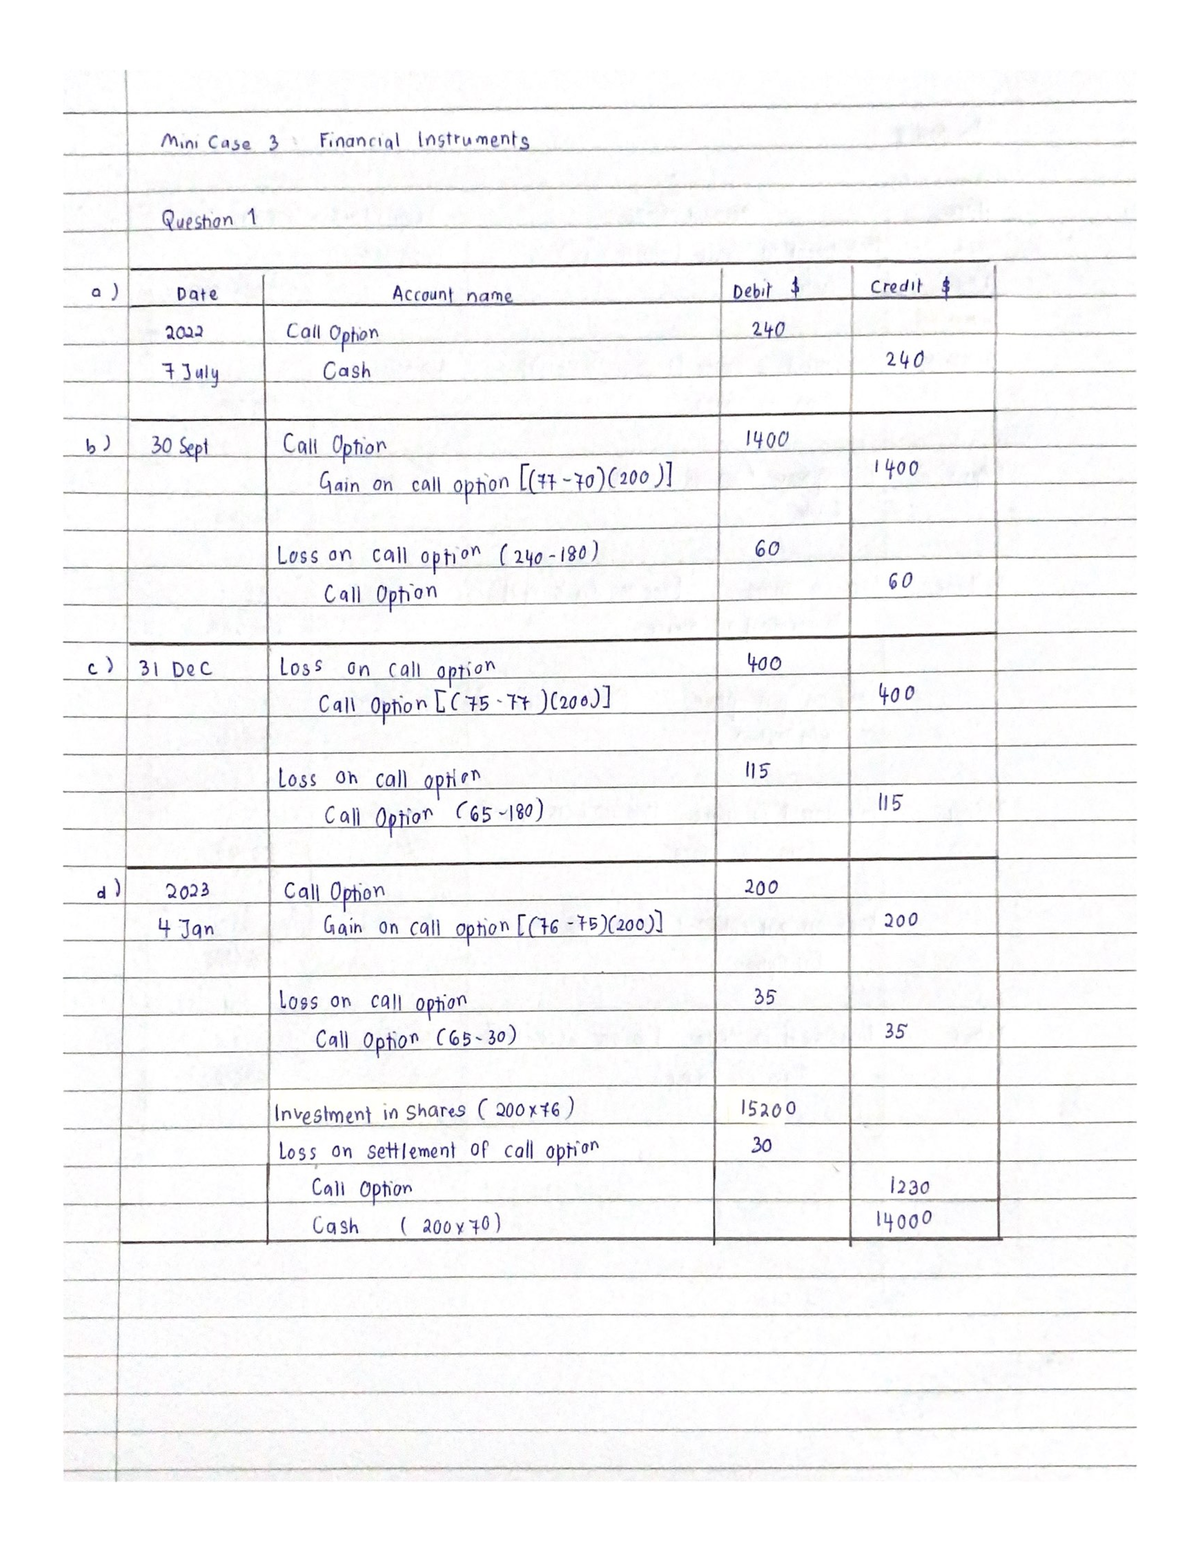 Mini Case 3 : Financial Instruments
Question 1
a) Date Account name Debit $ Credit $
2022 Call Option 240
7 July Cash 240
b) 30 Sept Call Option 1400
Gain on call option [(77-70)(200)] 1400
Loss on call option (240-180) 60
Call Option 60
c) 31 Dec Loss on call option 400
Call Option [(75-77)(200)] 400
Loss on call option 115
Call Option (65-180) 115
d) 2023 Call Option 200
4 Jan Gain on call option [(76-75)(200)] 200
Loss on call option 35
Call Option (65-30) 35
Investment in shares (200x76) 15200
Loss on settlement of call option 30
Call Option 1230
Cash (200x70) 14000